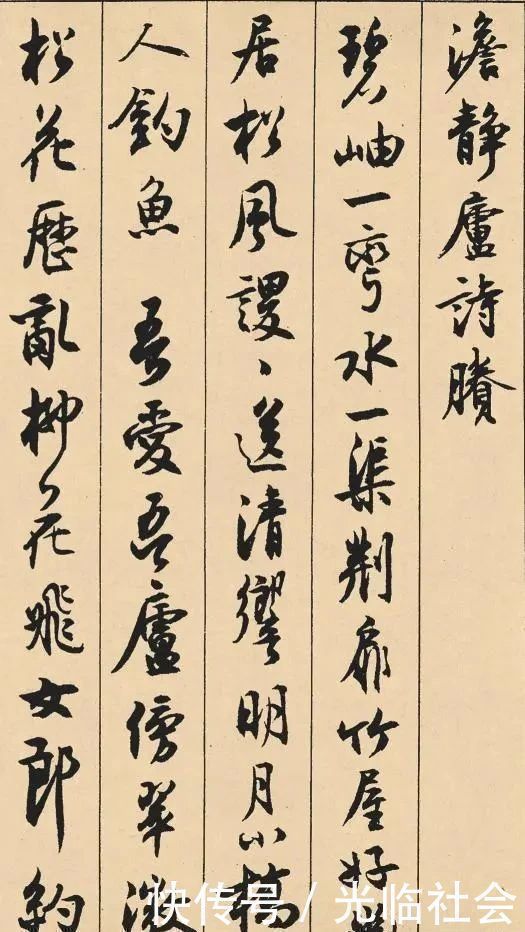 澹静廬詩賸
碧岫一彎水一渠荆扉竹屋好
居松風謖〻送清響明月小橋
人釣魚 吾愛吾廬傍翠微
松花歷亂柳花飛女郎約
快传号 / 光临社会